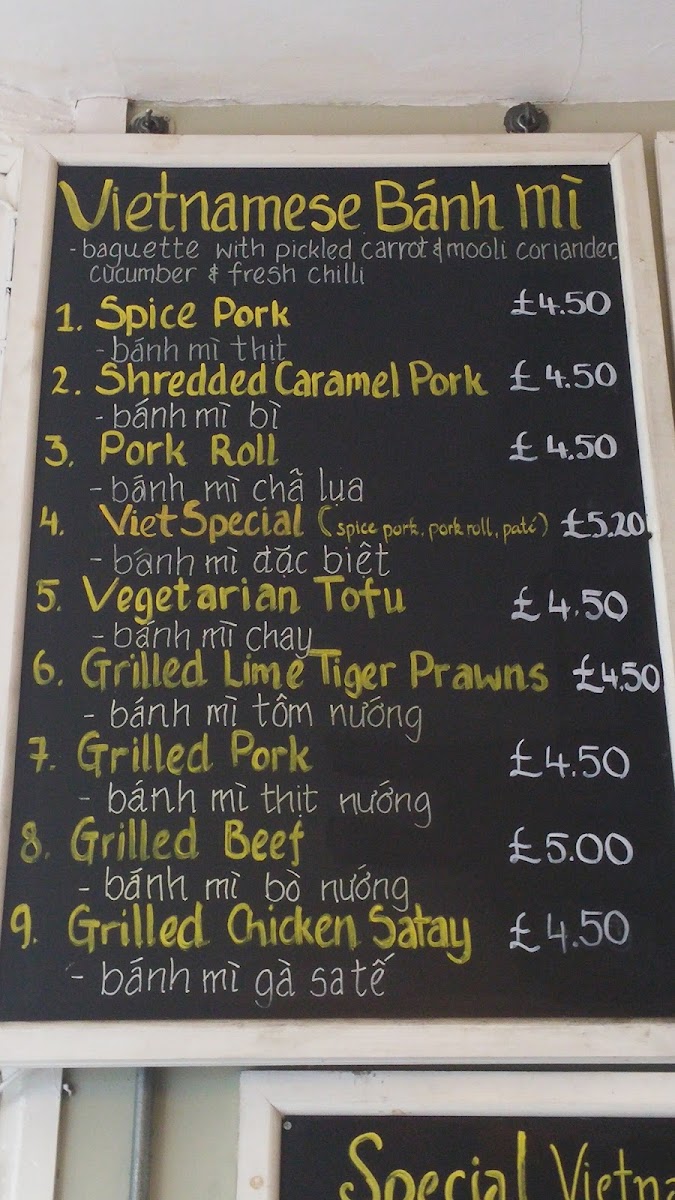 Vietnamese Bánh mì
- baguette with pickled carrot & mooli coriander,
cucumber & fresh chilli
1. Spice Pork £4.50
- bánh mì thịt
2. Shredded Caramel Pork £4.50
- bánh mì bì
3. Pork Roll £4.50
- bánh mì chã lụa
4. Viet Special (spice pork, pork roll, paté) £5.20
- bánh mì đặc biệt
5. Vegetarian Tofu £4.50
- bánh mì chay
6. Grilled Lime Tiger Prawns £4.50
- bánh mì tôm nướng
7. Grilled Pork £4.50
- bánh mì thịt nướng
8. Grilled Beef £5.00
- bánh mì bò nướng
9. Grilled Chicken Satay £4.50
- bánh mì gà sa tế
Special Vietna